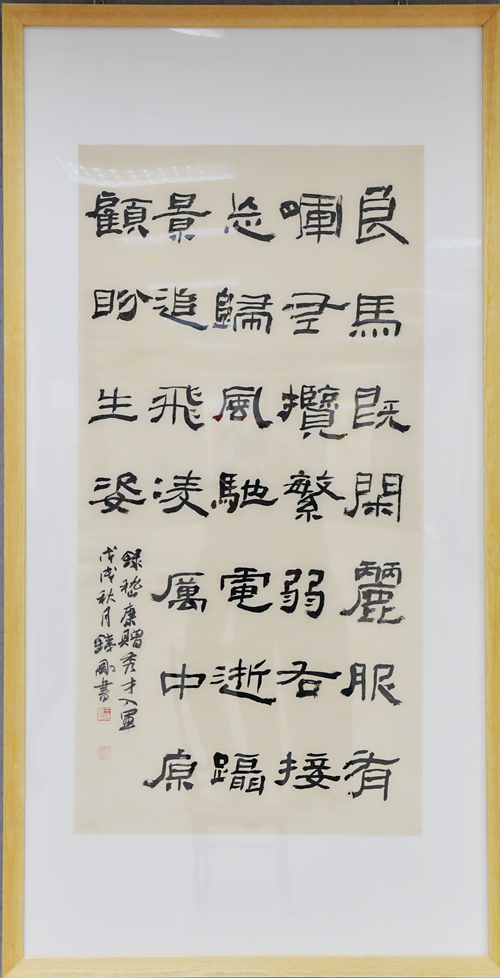 良馬既閑麗服有
暉左攬繁弱右接
忘歸風馳電逝躡
景追飛凌厲中原
顧盼生姿
録嵇康贈秀才入軍
戊戌秋月剛書